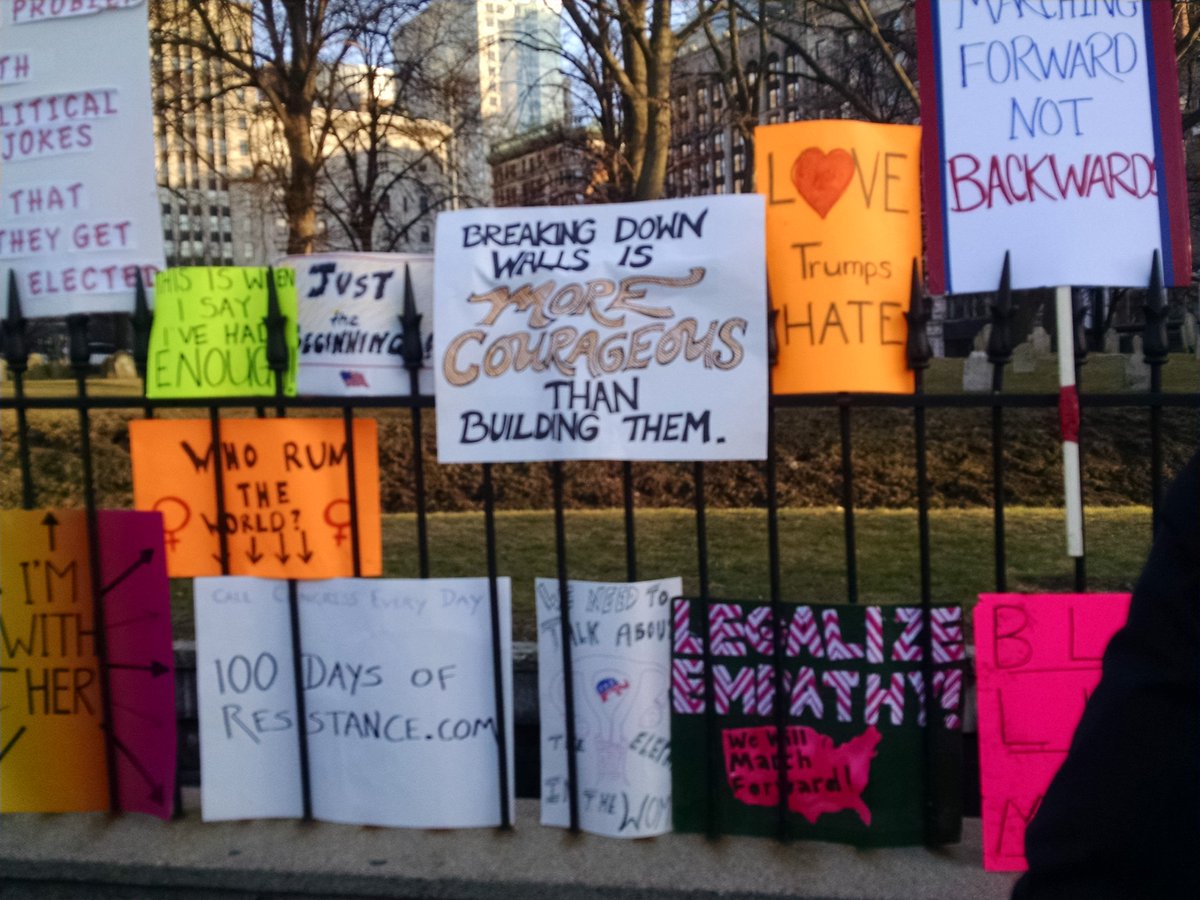 PROBLEM
TH
LITICAL
JOKES
THAT
THEY GET
ELECTED
THIS IS WHEN
I SAY
I'VE HAD
ENOUGH
JUST
the
BEGINNING
BREAKING DOWN
WALLS IS
MORE
COURAGEOUS
THAN
BUILDING THEM.
LOVE
Trumps
HATE
MARCHING
FORWARD
NOT
BACKWARDS
WHO RUN
THE
WORLD?
I'M
WITH
HER
CALL CONGRESS EVERY DAY
100 DAYS OF
RESISTANCE.COM
WE NEED TO
TALK ABOUT
THE ELEP
IN THE WOM
LEGALIZE
EMPATHY!
We Will
March
Forward!
B L
L
M